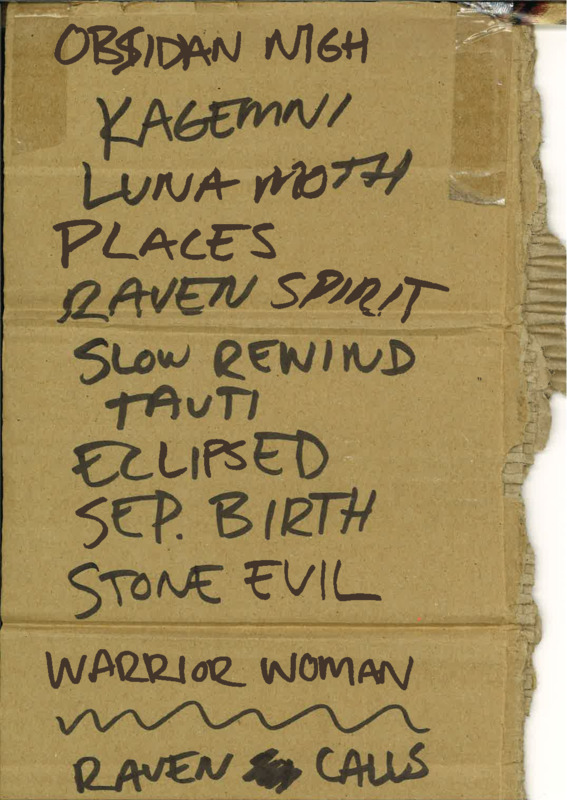 OBSIDAN NIGH
KAGEMNI
LUNA MOTH
PLACES
RAVEN SPIRIT
SLOW REWIND
TAUTI
ECLIPSED
SEP. BIRTH
STONE EVIL
WARRIOR WOMAN
RAVEN CALLS